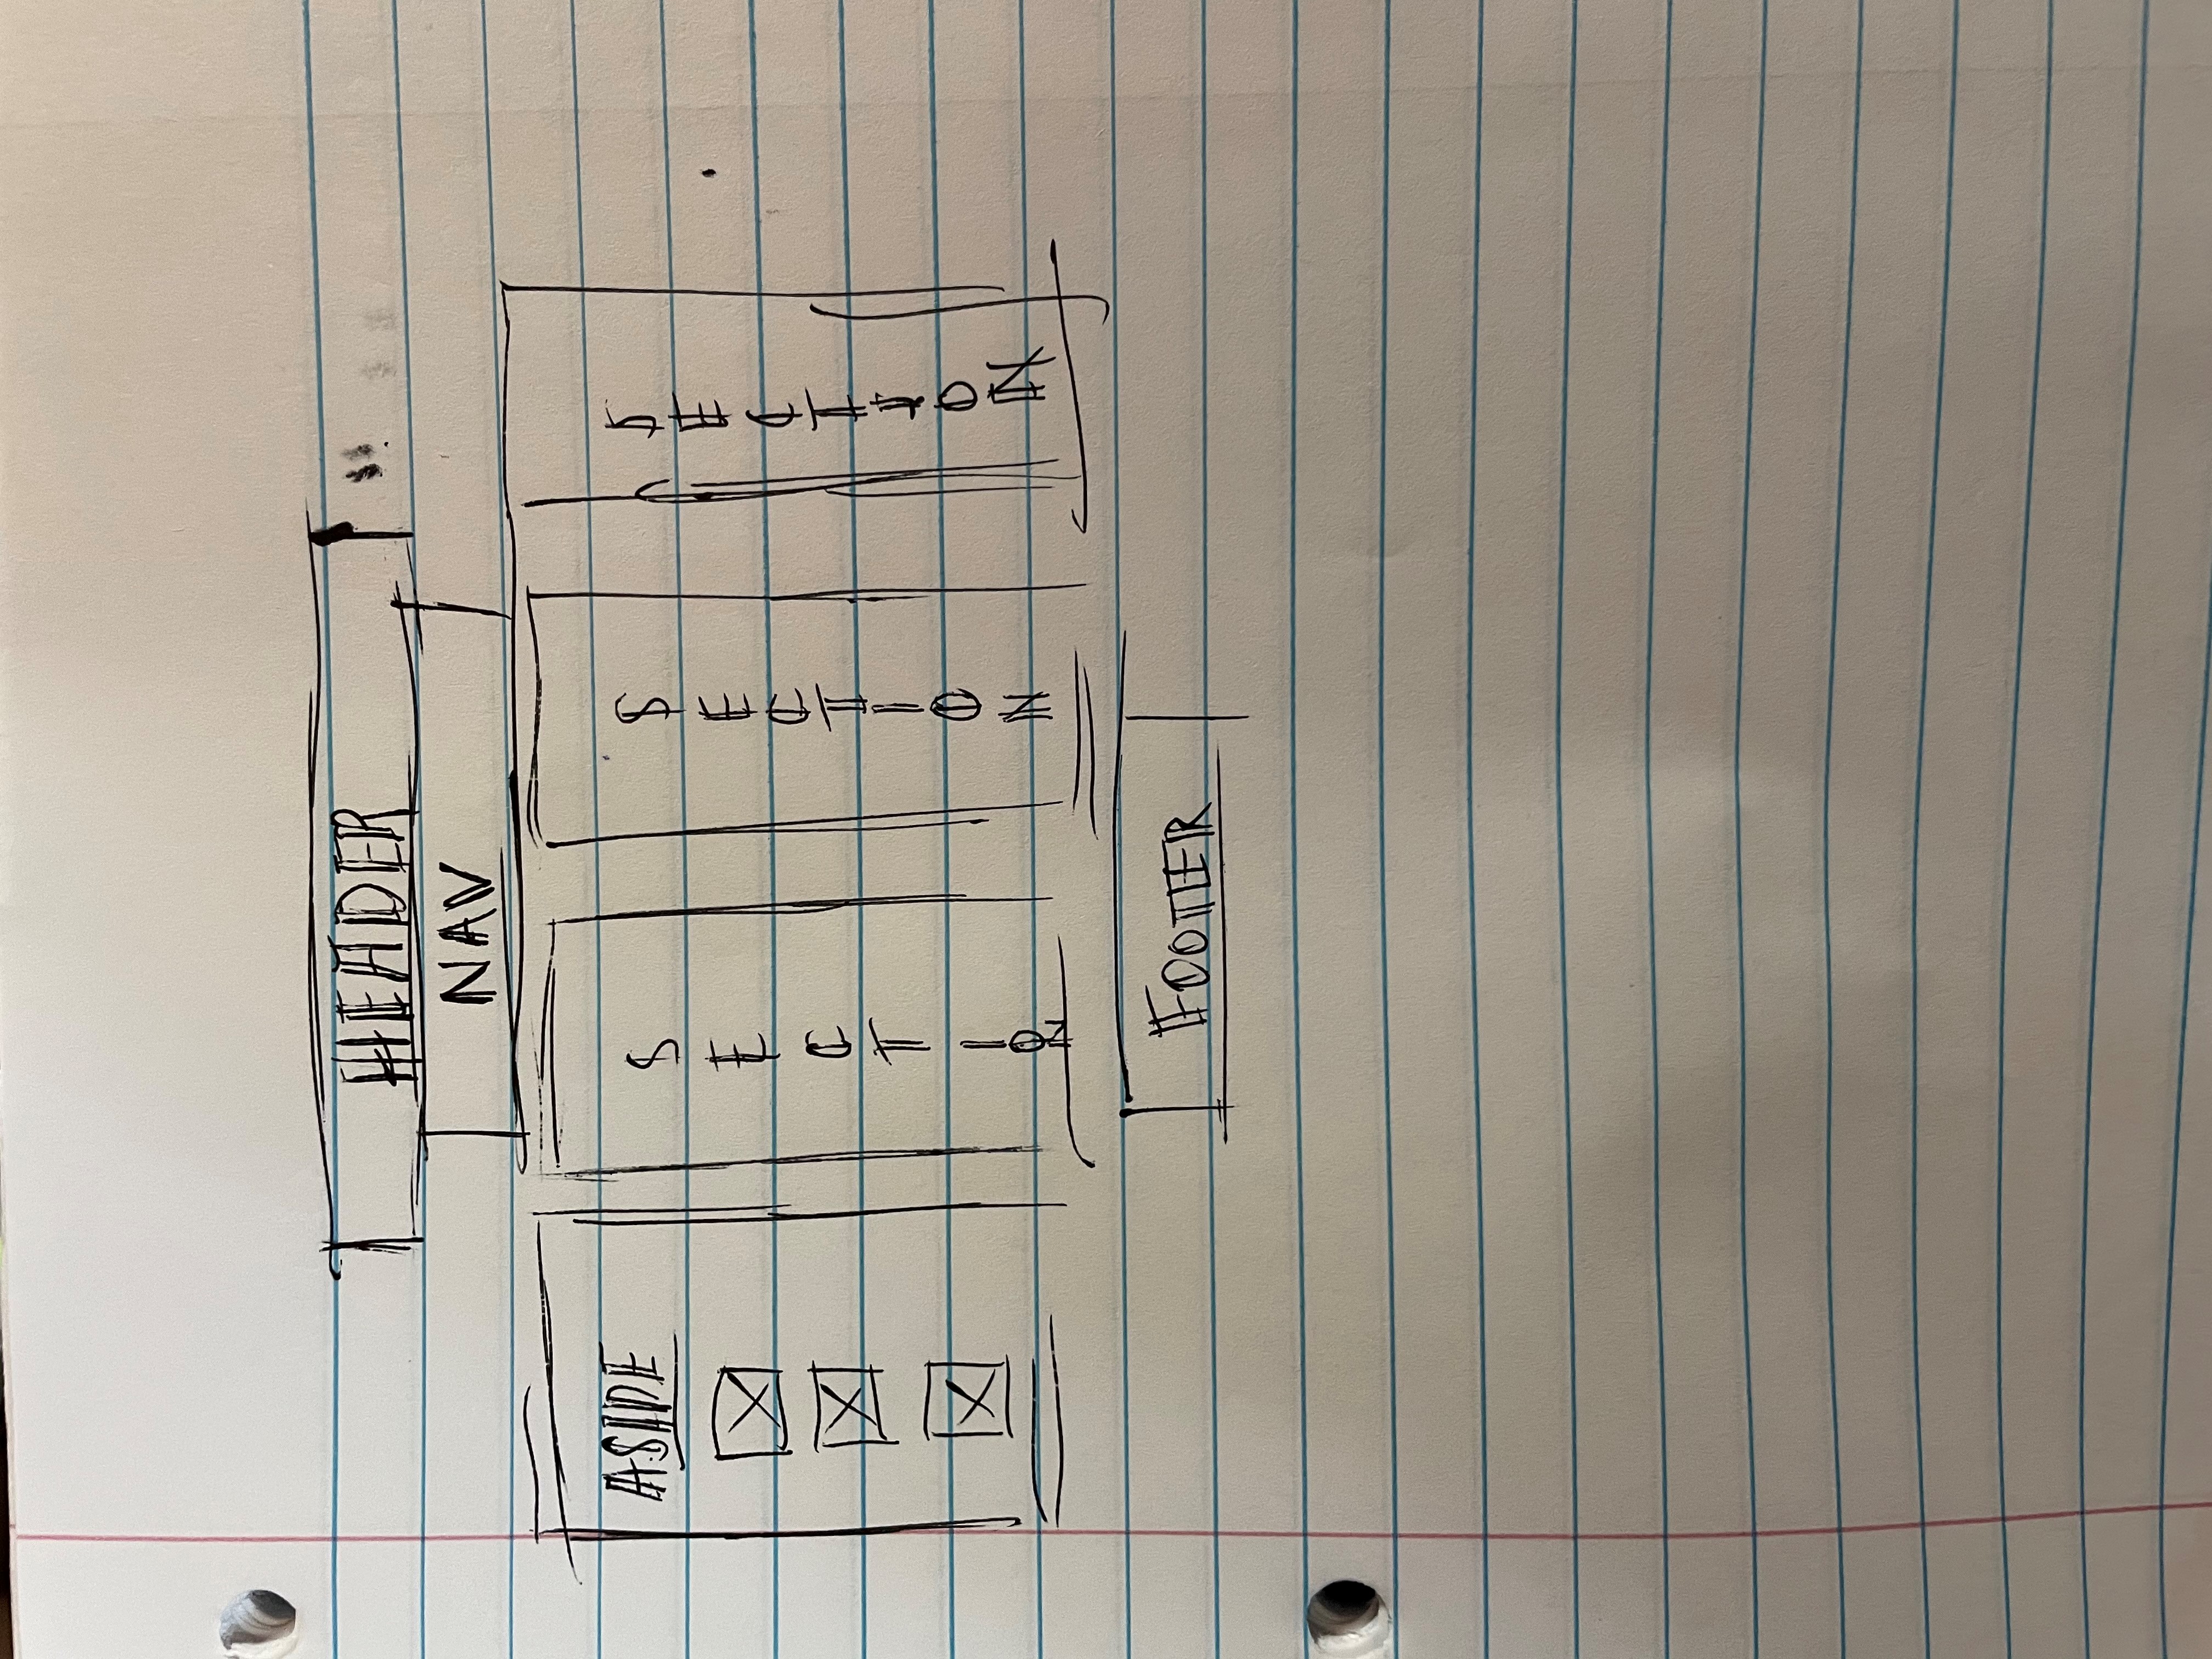 HEADER
NAV
ASIDE
SECTION
SECTION
SECTION
FOOTER